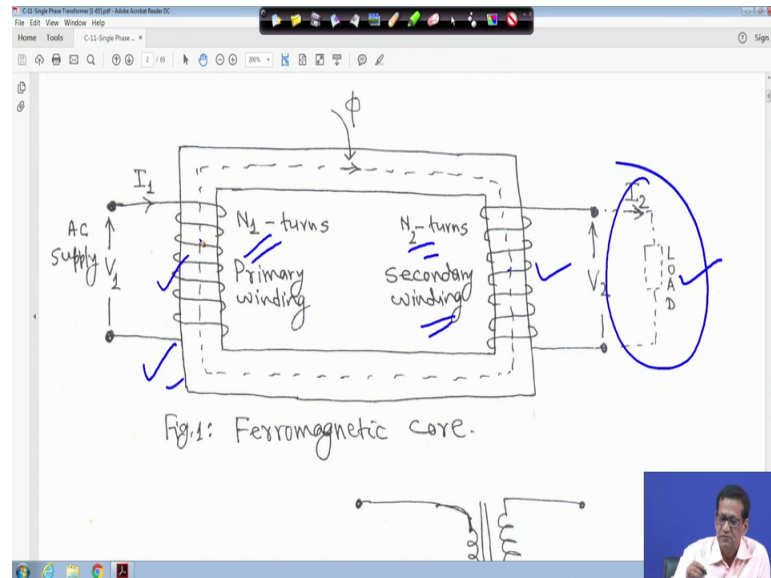 C-11-Single Phase Transformer [1-65].pdf - Adobe Acrobat Reader DC
File Edit View Window Help
Home Tools C-11-Single Phase ... × Sign
2 / 65 200%
Φ
I₁ I₂
AC supply V₁
N₁-turns
Primary winding
N₂-turns
Secondary winding
V₂
LOAD
Fig.1: Ferromagnetic core.